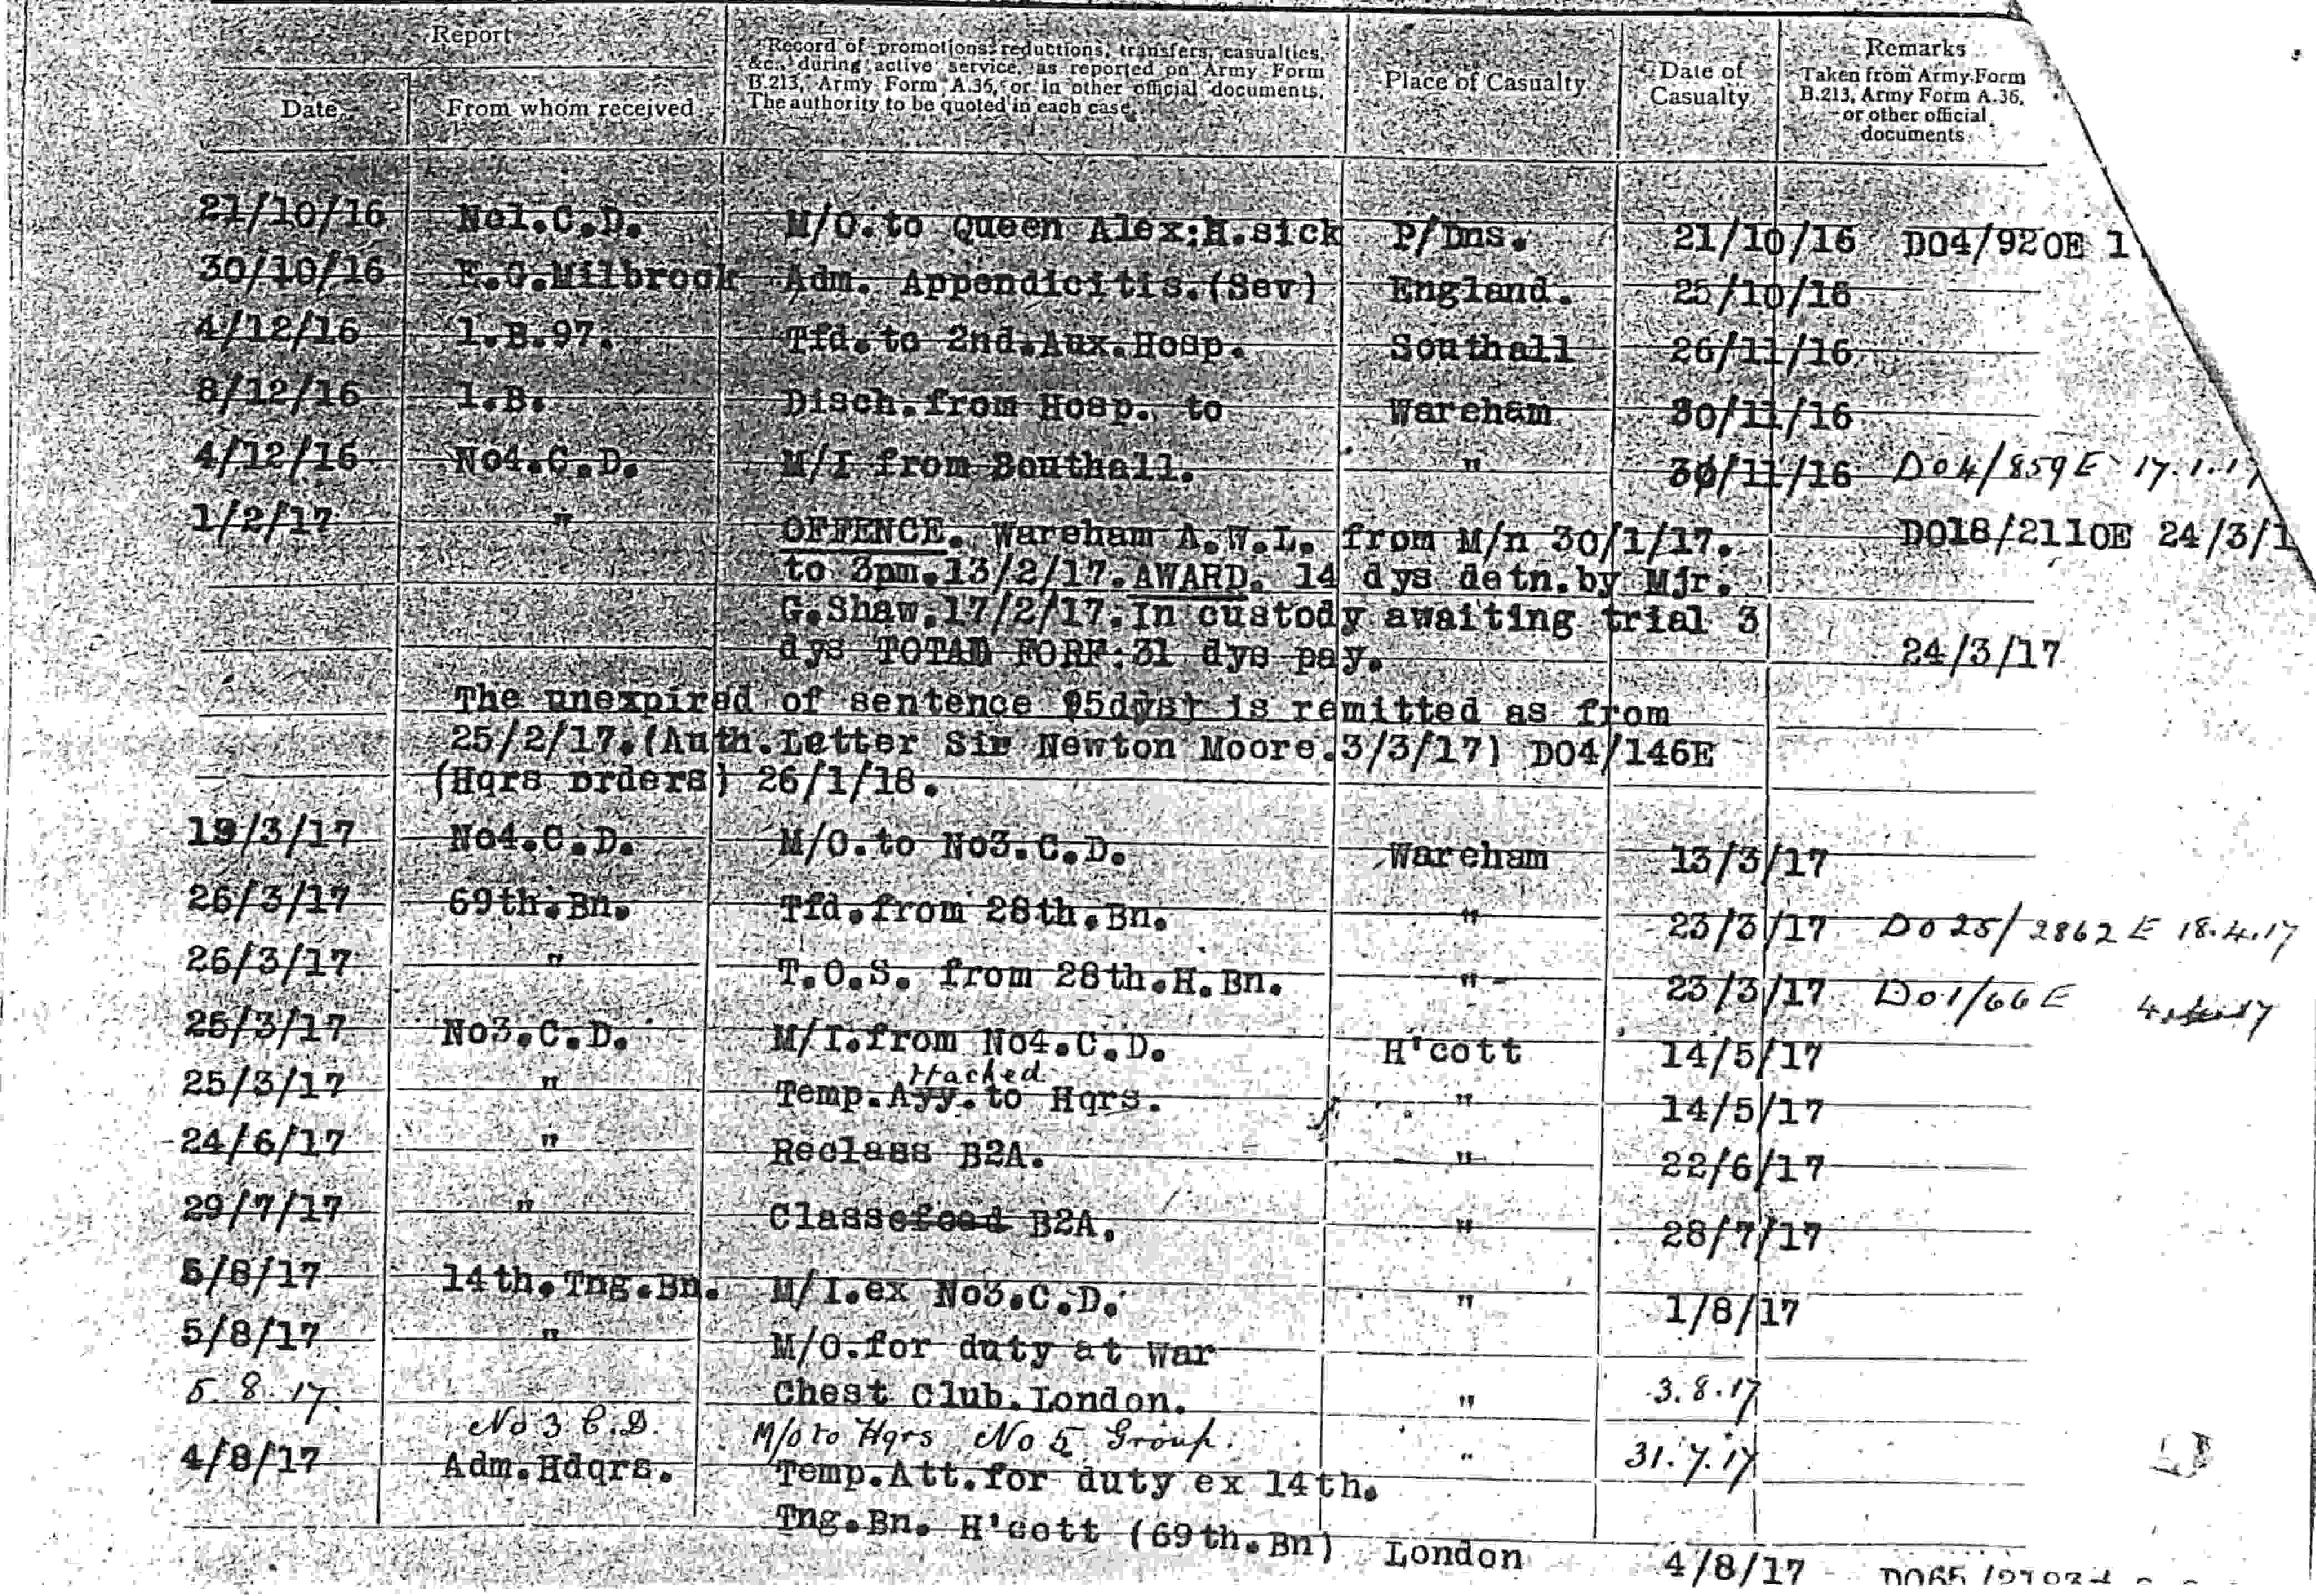 Report
Record of promotions, reductions, transfers, casualties,
&c., during active service, as reported on Army Form
B.213, Army Form A.36, or in other official documents.
The authority to be quoted in each case.
Place of Casualty
Date of
Casualty
Remarks
Taken from Army Form
B.213, Army Form A.36,
or other official
documents
Date
From whom received
21/10/16 No1.C.D. M/O.to Queen Alex:H.sick P/Dns. 21/10/16 DO4/920E 1
30/10/16 E.G.Milbrook Adm. Appendicitis.(Sev) England. 25/10/16
4/12/16 1.B.97. Tfd.to 2nd.Aux.Hosp. Southall 26/11/16
8/12/16 1.B. Disch.from Hosp. to Wareham 30/11/16
4/12/16 No4.C.D. M/I from Southall. " 30/11/16 DO4/859E 17.1.17
1/2/17 " OFFENCE. Wareham A.W.L. from M/n 30/1/17. DO18/2110E 24/3/1
to 3pm.13/2/17.AWARD. 14 dys detn.by Mjr.
G.Shaw.17/2/17.In custody awaiting trial 3
dys TOTAL FORF:31 dys pay. 24/3/17
The unexpired of sentence is remitted as from
25/2/17.(Auth.Letter Sir Newton Moore.3/3/17) DO4/146E
(Hqrs orders) 26/1/18.
19/3/17 No4.C.D. M/O.to No3.C.D. Wareham 13/3/17
26/3/17 69th.Bn. Tfd.from 28th.Bn. " 23/3/17 DO 25/2862 E 18.4.17
26/3/17 " T.O.S. from 28th.H.Bn. " 23/3/17 DO1/66 E
25/3/17 No3.C.D. M/I.from No4.C.D. H'cott 14/5/17
ttached
25/3/17 " Temp.Ayy.to Hqrs. " 14/5/17
24/6/17 " Reclass B2A. " 22/6/17
29/7/17 " Classefeed B2A. " 28/7/17
5/8/17 14th.Tng.Bn. M/I.ex No3.C.D. " 1/8/17
5/8/17 " M/O.for duty at War
Chest Club.London. " 3.8.17
5.8.17. No 3 C.D. M/o to Hqrs No 5 Group. " 31.7.17
4/8/17 Adm.Hdqrs. Temp.Att.for duty ex 14th.
Tng.Bn. H'cott (69th.Bn) London 4/8/17